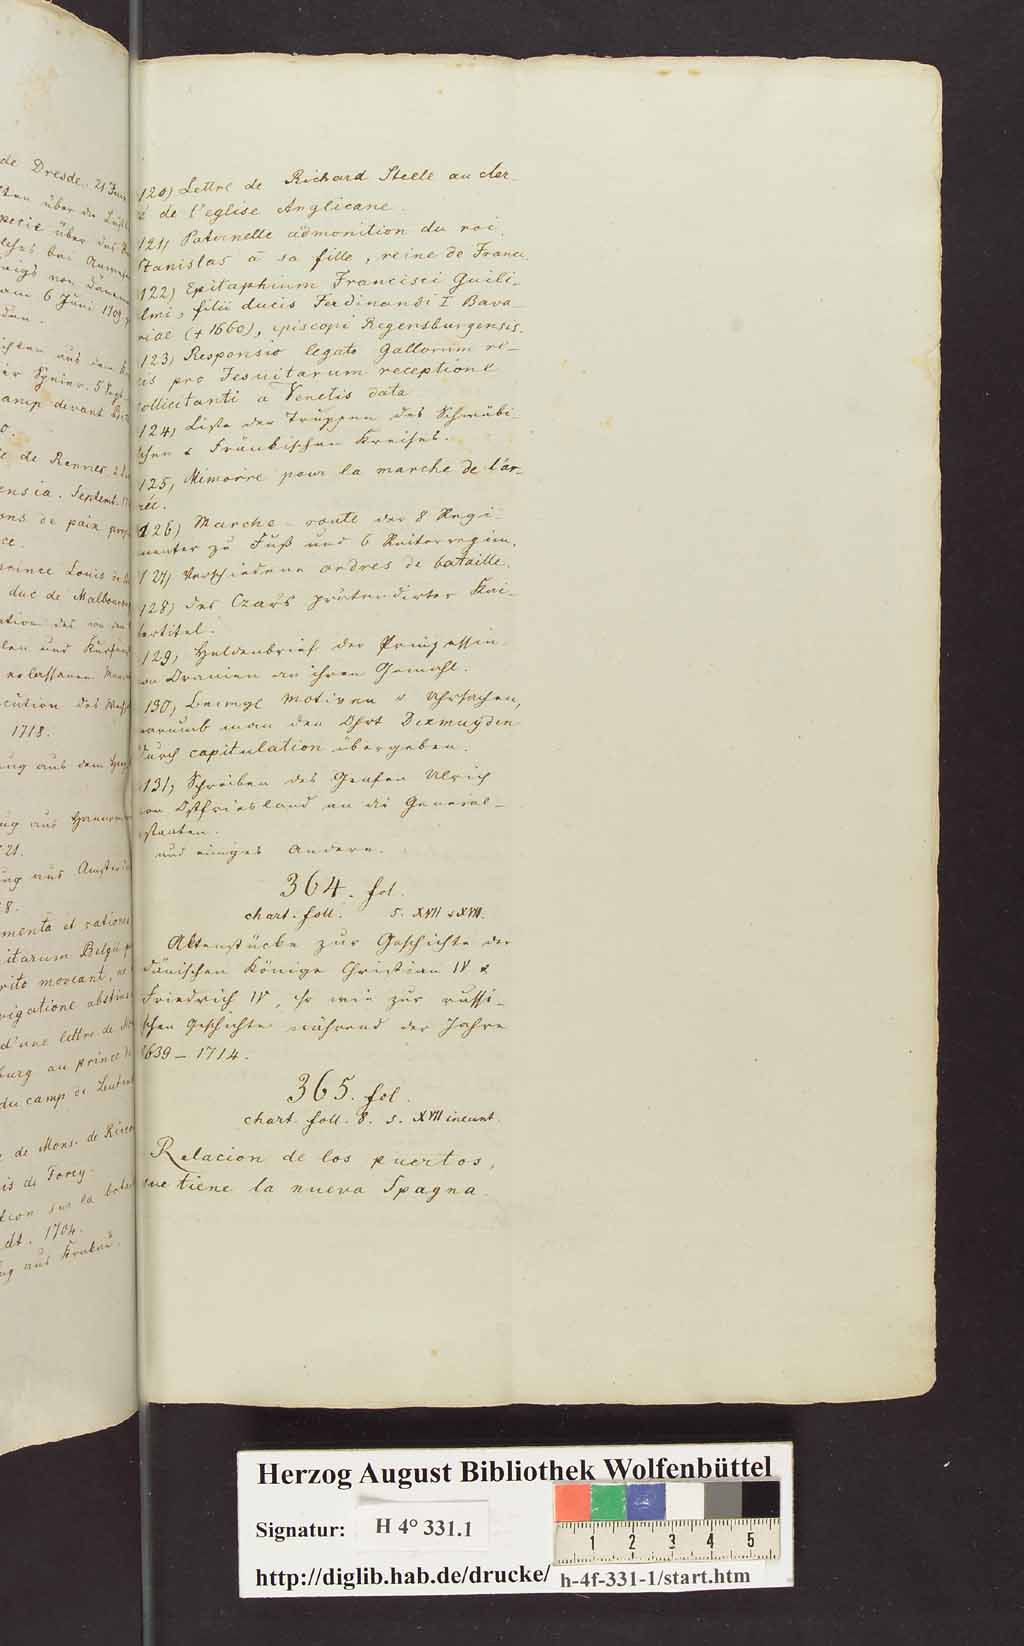 de Dresde. 21 Juni
6 Juni 1709
de Rennes. 2
ensia. Septemb.
ons de paix
ce.
prince Louis de
duc de Malbour
1718.
21.
menta et ratione
itarum Belgii
rito moveant,
vigatione abstine
d'une lettre de
burg au prince de
du camp de
de Mons. de
is de Torcy.
tion sur la batail
dt. 1704.
120) Lettre de Richard Steele au cler-
é de l'eglise Anglicane.
121) Paternelle admonition du roi
Stanislas à sa fille, reine de France.
122) Epitaphium Francisci Guili-
elmi, filii ducis Ferdinandi I Bava-
riae (+ 1660), episcopi Regensburgensis.
123) Responsio legato Gallorum re-
gis pro Jesuitarum receptione
sollicitanti a Venetis data
124) Liste der Truppen des Schwäbi-
schen & Fränkischen Kreises.
125) Mémoire pour la marche de l'ar-
mée.
126) Marche-route der 8 Regi-
menter zu Fuß und 6 Reiterregim.
127) Verschiedene ordres de bataille.
128) Des Czars prätendirter Kai-
sertitel.
129) Heldenbrief der Prinzessin
von Oranien an ihren Gemahl.
130) Einige Motiven & Uhrsachen,
warumb man den Ohrt Dixmuyden
durch capitulation übergeben.
131) Schreiben des Grafen Ulrich
von Ostfriesland an die General-
staaten.
und einiges Andere.
364. fol.
chart. foll. s. XVII & XVIII.
Aktenstücke zur Geschichte der
dänischen Könige Christian IV &
Friedrich IV, so wie zur russi-
schen Geschichte während der Jahre
1639 – 1714.
365. fol.
chart. foll. 8. s. XVII ineunt.
Relacion de los puertos,
que tiene la nueva Spagna.
Herzog August Bibliothek Wolfenbüttel
Signatur: H 4° 331.1
1 2 3 4 5
http://diglib.hab.de/drucke/ h-4f-331-1/start.htm